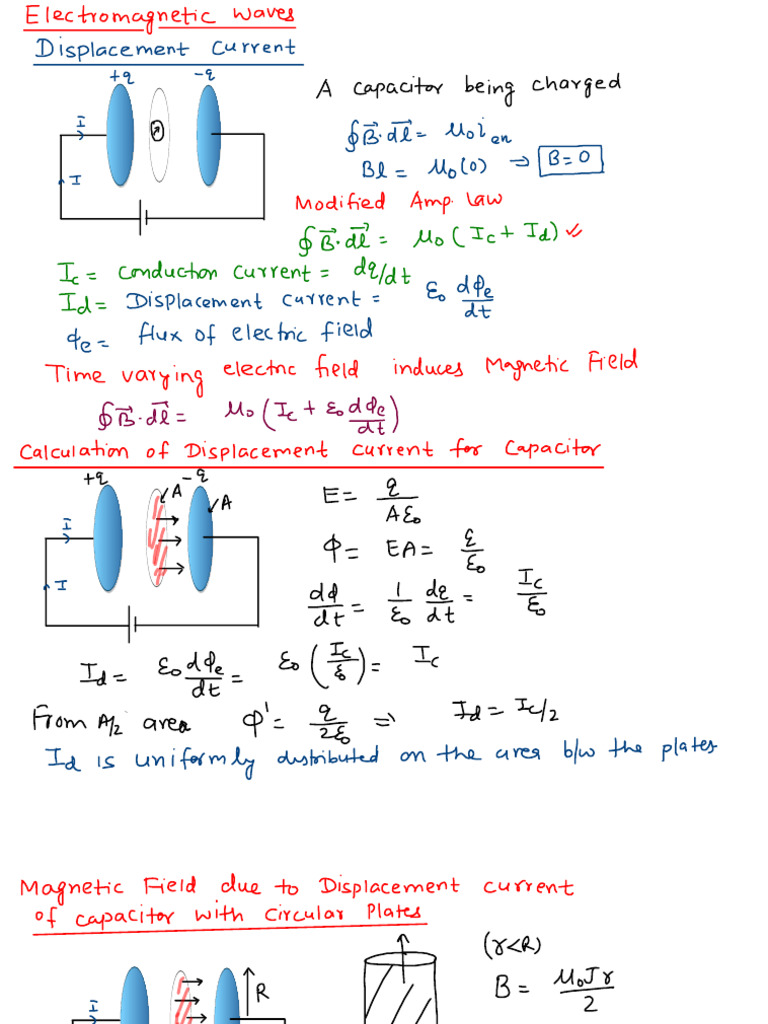 Electromagnetic waves
Displacement Current
+q -q
A capacitor being charged
I
I
∮B⃗·dl⃗ = μ₀i en
Bl = μ₀(0) ⇒ B=0
Modified Amp. Law
∮B⃗·dl⃗ = μ₀(Ic + Id) ✓
Ic = conduction current = dq/dt
Id = Displacement current = ε₀ dφe/dt
φe = flux of electric field
Time varying electric field induces Magnetic Field
∮B⃗·dl⃗ = μ₀(Ic + ε₀ dφe/dt)
Calculation of Displacement current for Capacitor
+q -q
A
A
I
I
E = q/Aε₀
φ = EA = q/ε₀
dφ/dt = 1/ε₀ dq/dt = Ic/ε₀
Id = ε₀ dφe/dt = ε₀(Ic/ε₀) = Ic
From A/2 area φ' = q/2ε₀ ⇒ Id = Ic/2
Id is uniformly distributed on the area b/w the plates
Magnetic Field due to Displacement current
of capacitor with Circular Plates
(r<R)
R
B = μ₀Jr/2
I